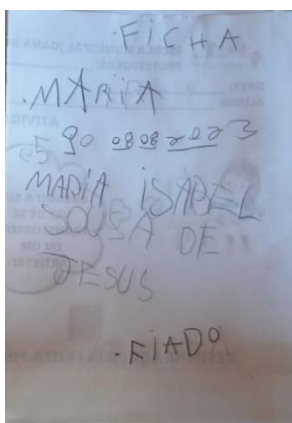 ·FICHA
·MARIA
590 08082023
MARIA ISABEL
SOUSA DE
JESUS
·FIADO